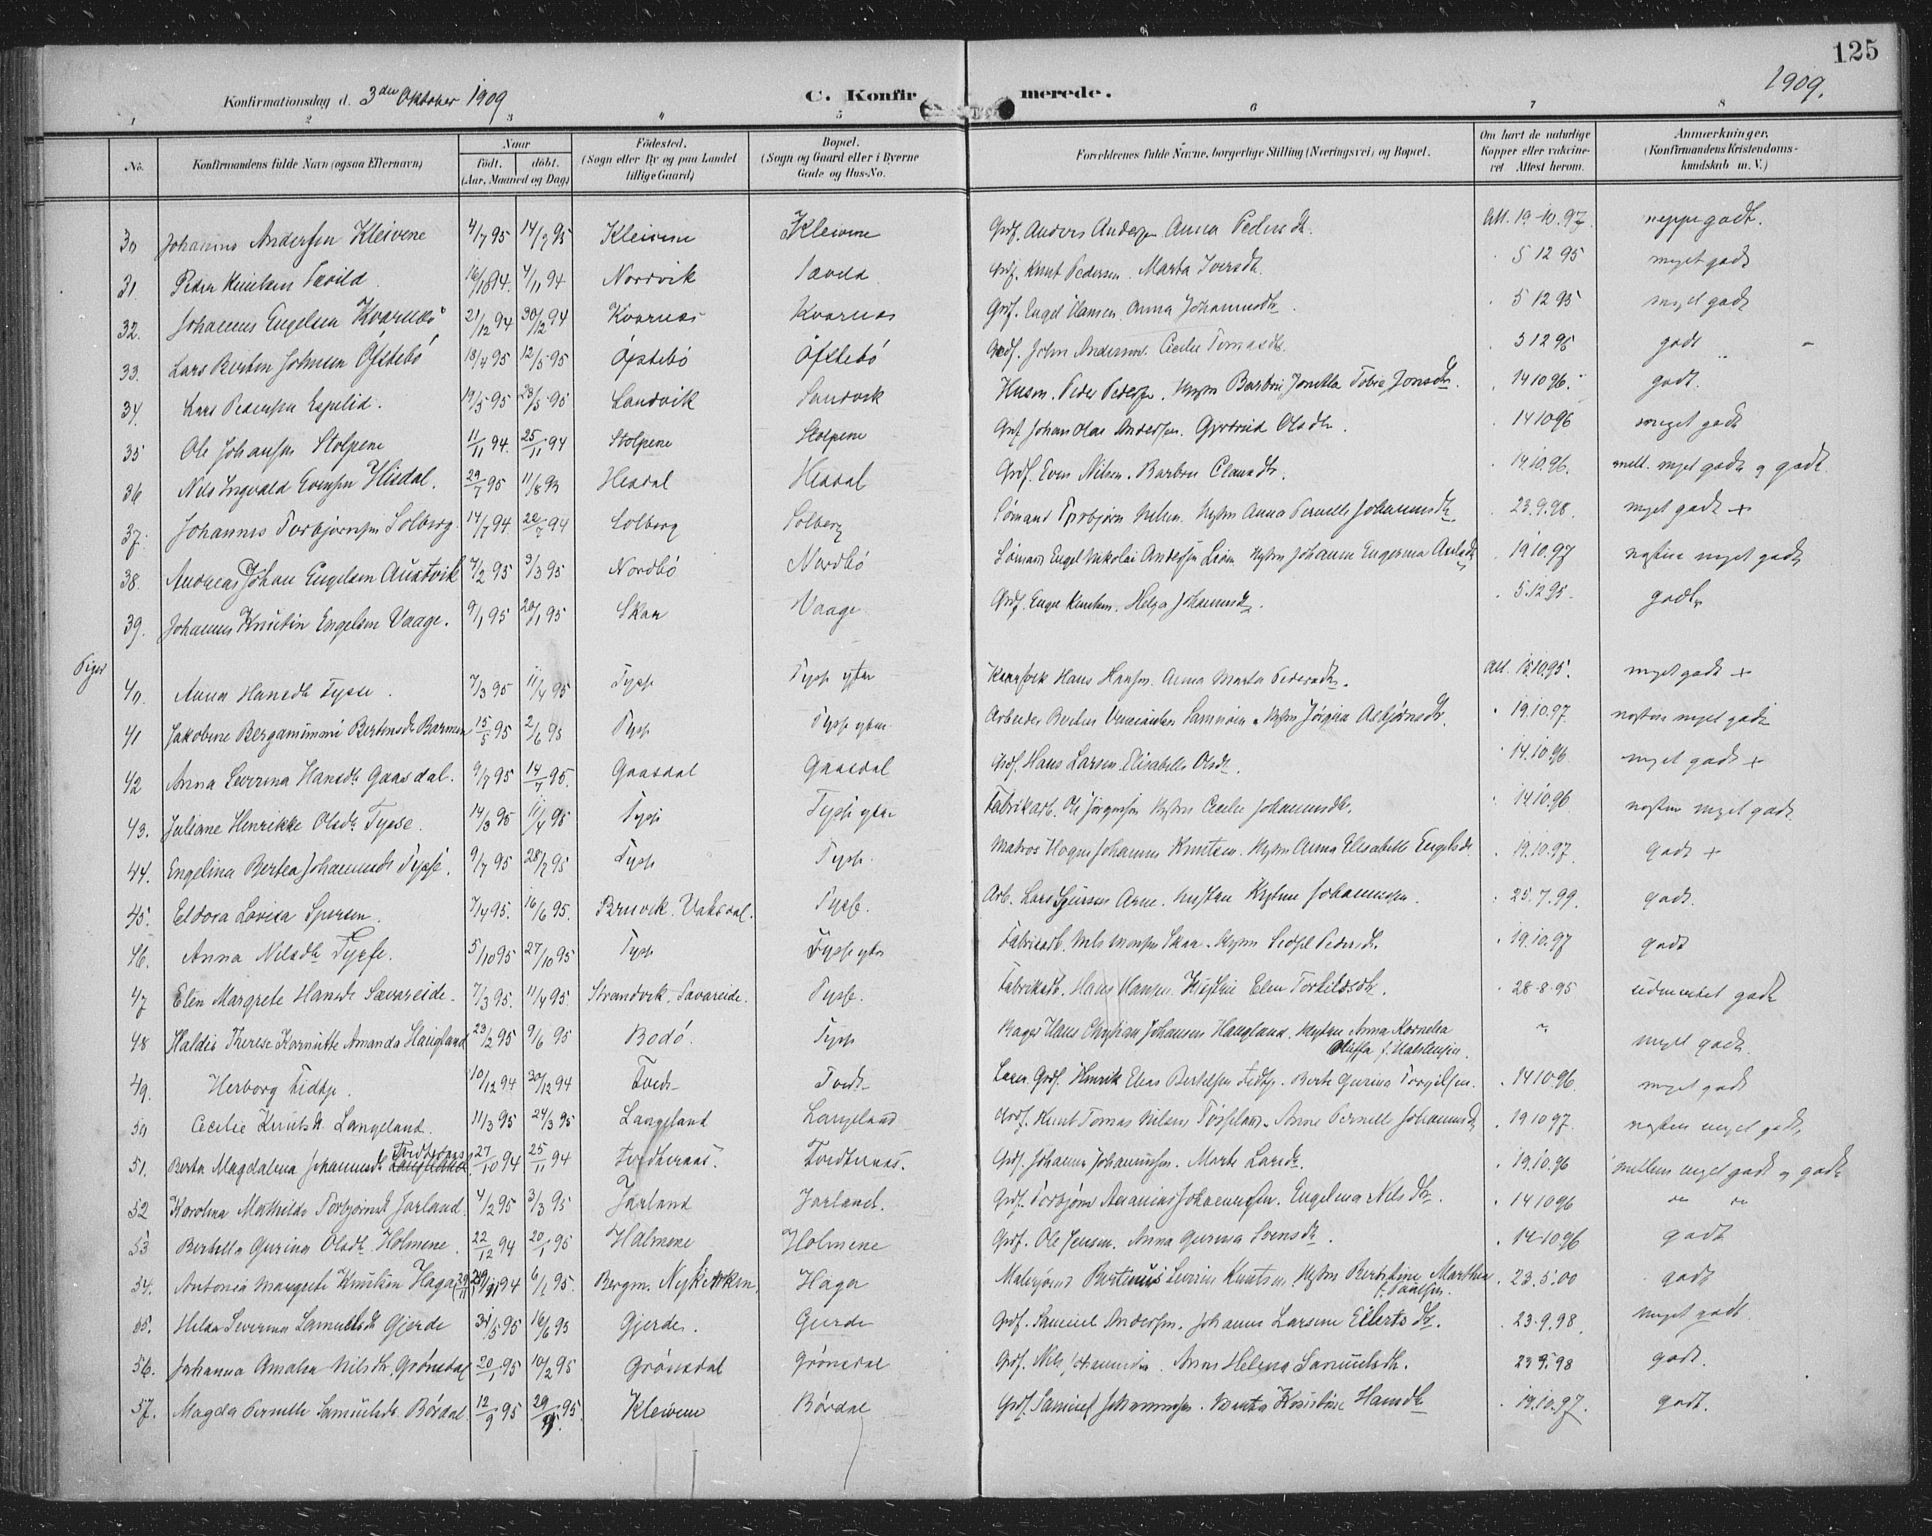 125
1909.
Konfirmationsdag d. 3die Oktober 1909
C. Konfirmerede.
1 2 3 4 5 6 7 8
No. Konfirmandens fulde Navn (ogsaa Efternavn) Naar født. døbt. (Aar, Maaned og Dag) Fødested. (Sogn eller By og paa Landet tillige Gaard) Bopæl. (Sogn og Gaard eller i Byerne Gade og Hus-No. Forældrenes fulde Navne, borgerlige Stilling (Næringsvei) og Bopæl. Om havt de naturlige Kopper eller vakcineret Attest herom. Anmærkninger. (Konfirmandens Kristendomskundskab m. V.)
30 Johannes Andersen Kleivene 4/7 95 14/7 95 Kleivene Kleivene Grdf. Anders Andersen Anna Pedersdtr. Att. 19-10.97 neppe godt.
31. Peder Knutsen Sævild 16/10 94. 4/11 94 Nordvik Sævild Grdf. Knut Pedersen. Marta Iversdtr. 5 12 95 meget godt
32. Johannes Engelsen Kvarnes 21/12 94 30/12 94 Kvarnes Kvarnes Grdf. Engel Hansen Anna Johannesdtr. 5 12 95 meget godt
33. Lars Bertin Johnsen Øfstebö 18/4 95 12/5 95 Öfstebö Öfstebó Grdf. John Andersen. Cecilie Tomasdtr. 5 12 95 godt
34. Lars Pedersen Espelid. 19/5 95 23/5 95 Sandvik Sandvik Husm. Peder Pedersen. Hustru Barbra Jonetta Tobia Jonsdtr. 14 10 96. godt.
35 Ole Johansen Stolpene 11/11 94. 25/11 94 Stolpene Stolpene Grdf. Johan Olai Andersen. Gjertrud Olsdtr. 14 10 96 meget godt
36 Nils Ingvald Evensen Hisdal. 29/7 95 11/8 95 Hisdal Hisdal Grdf. Even Nilsen. Barbra Clausdtr. 14.10.96. mell. meget godt og godt.
37. Johannes Torbjørnsen Solberg 14/7 94. 22/7 94 Solberg Solberg Sømand Torbjørn Nilsen. Hustru Anna Pernille Johannesdtr. 23.9.98. meget godt +
38. Andreas Johan Engelsen Austvik 7/2 95 3/3 95 Nordbö Nordbö Sømand Engel Nikolai Andersen. Hustru Johanna 19 10.97 næsten meget godt
39. Johannes Kristin Engelsen Vaage. 9/1 95 20/1 95 Skaar Vaage. Grdf. Engel Knutsen. Helga Johannesdtr. 5.12 95. godt
Piger
40. Anna Hansdtr Tysse. 7/3 95 11/4 95 Tysse Tysse ytre Hans Hansen. Anna Marta Pedersdtr. Att. 15.10.95. meget godt +
41 Jakobine Bergamimmi Bertinsdtr Barmen 15/5 95 2/6 95 Tysse Tysse ytre Arbeider Hustru Jørgina Asbjørnsdtr. 19.10.97. næsten meget godt
42 Anna Severina Hansdtr Gaasdal. 9/7 95 14/7 95. Gaasdal Gaasdal Grdf. Hans Larsen. Elisabeth Olsdtr. 14.10.96 meget godt +
43. Juliane Henrikke Olsdtr Tysse. 14/3 95 11/4 95 Tysse Tysse ytre Fabrikarb. Ole Jørgensen Hustru Cecilie Johannesdtr. 14 10.96 næsten meget godt
44. Engelina Bertea Johannesdtr Tysse. 9/7 95 28/7 95 Tysse Tysse. Matros Johannes Knutsen. Hustru Anna Elisabeth Engelsdtr. 19.10.97. godt +
45. Eldora Lovisa Sjursen. 7/4 95. 16/6 95. Bruvik. Vaksdal. Tysse. Arb. Lars Sjursen 25.7.99. godt.
46. Anna Nilsdtr Tysse. 5/10 95 27/10 95 Tysse Tysse ytre Fabrikarb. Nils Monsen Skaar. Hustru Pedersdtr. 19.10.97 godt
47 Elen Margrete Hansdtr Sævareide. 7/3 95. 11/4 95 Strandvik. Sævareide. Tysse. Fabrikarb. Hans Hansen. Hustru Elen Torkildsdtr. 28-8-95 udmærket godt
48 Haldis Therese Kornutte Amanda Haugland 23/2 95 9/6 95 Bodó. Tysse Bager Hans Christian Johansen Haugland. Hustru Anna Kornelia Oluffa f. Halstensen. " meget godt.
49. Herborg Tidtje. 10/12 94. 30/12 94 Tvedt Tvedt Grdf. Henrik Elias Bertelsen Berte Gurina Torgilsen. 14 10 96. meget godt
50 Cecilie Knutsdtr. Langeland. 11/3 95 24/3 95 Langeland Langeland Grdf. Knut Tomas Nilsen Anne Pernille Johannesdtr. 19 10 97. næsten meget godt
51. Berta Magdalena Johannesdtr Tvedternæs 27/10 94 25/11 94 Tvedternæs. Tvedternæs. Grdf. Johannes Johannessen. Marta Larsdtr. 19.10.96 mellem meget godt og godt
52 Karolina Mathilde Torbjørnsdtr Jarland. 4/2 95 3/3 95 Jarland Jarland. Grdf. Torbjørn Ananias Johannessen. Engelina Nilsdtr. 14 10 96 " "
53 Bertella Gurina Olsdtr. Holmene. 22/12 94 20/1 95 Holmene Holmene Grdf. Ole Jensen. Anna Gurina Svensdtr. 14-10 96 godt
54. Antonia Margrete Knutsen Haga 29/11 94 6/1 95. Bergen. Nykirken. Haga Bertinus Severin Knutsen. Hustru Bertitine Marthea f. Paulsen. 23.5.00 godt
55. Helda Severina Samuelsdtr Gjerde 31/5 95 16/6 95 Gjerde. Gjerde Grdf. Samuel Andersen. Johanne Larsine Eilertsdtr. 23-9.98. meget godt
56. Johanna Amalia Nilsdtr. Grónsdal 20/1 95 10/2 95 Grónsdal Grónsdal Grdf. Nils Johannessen. Anne Helena Samuelsdtr. 23 9.98 godt.
57. Magda Pernille Samuelsdtr. Bórdal 12/9 95 29/9 95. Kleivene Bórdal Grdf. Samuel Johannessen. Marta Kristine Hansdtr 19.10.97. godt.